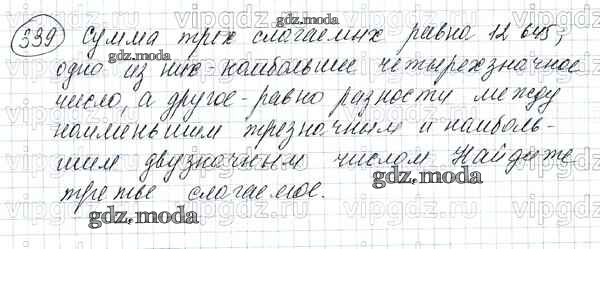 339 Сумма трех слагаемых равна 12 645;
одно из них - наибольшее четырехзначное
число, а другое - равно разности между
наименьшим трезначным и наиболь-
шим двузначным числом. Найдите
третье слагаемое.
gdz.moda
gdz.moda
gdz.moda
gdz.moda
vipgdz.ru